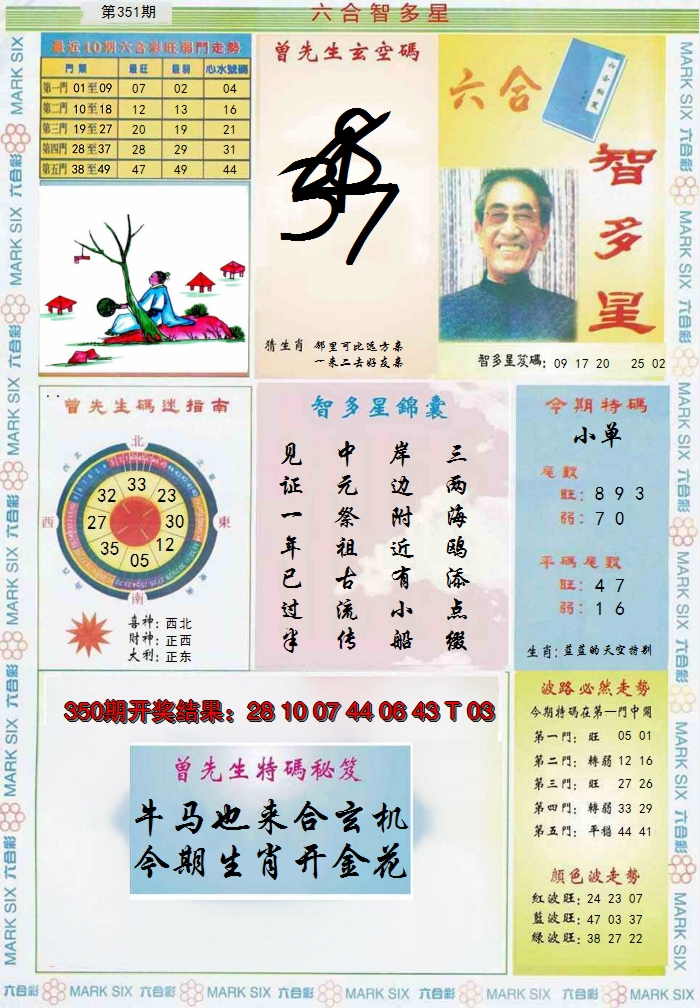 第351期
六合智多星
最近10期六合彩旺弱門走勢
門類 最旺 最弱 心水號碼
第一門 01至09 07 02 04
第二門 10至18 12 13 16
第三門 19至27 20 19 21
第四門 28至37 28 29 31
第五門 38至49 47 49 44
曾先生玄空碼
猜生肖 邻里可比远方亲
一来二去好友亲
六合
六合秘笈
智多星
智多星笈碼: 09 17 20 25 02
曾先生碼迷指南
北
西北
東北
西
東
南
33
23
30
12
05
35
27
32
喜神: 西北
財神: 正西
大利: 正东
智多星錦囊
三两海鸥添点缀
岸边附近有小船
中元祭祖古流传
见证一年已过半
今期特碼
小单
尾數
旺: 8 9 3
弱: 7 0
平碼尾數
旺: 4 7
弱: 1 6
生肖: 蓝蓝的天空特别
350期开奖结果: 28 10 07 44 06 43 T 03
曾先生特碼秘笈
牛马也来合玄机
今期生肖开金花
波路必然走勢
今期特碼在第一門中開
第一門: 旺 05 01
第二門: 轉弱 12 16
第三門: 旺 27 26
第四門: 轉弱 33 29
第五門: 平穩 44 41
顏色波走勢
紅波旺: 24 23 07
藍波旺: 47 03 37
綠波旺: 38 27 22
六合彩 MARK SIX 六合彩 MARK SIX 六合彩 MARK SIX 六合彩 MARK SIX 六合彩